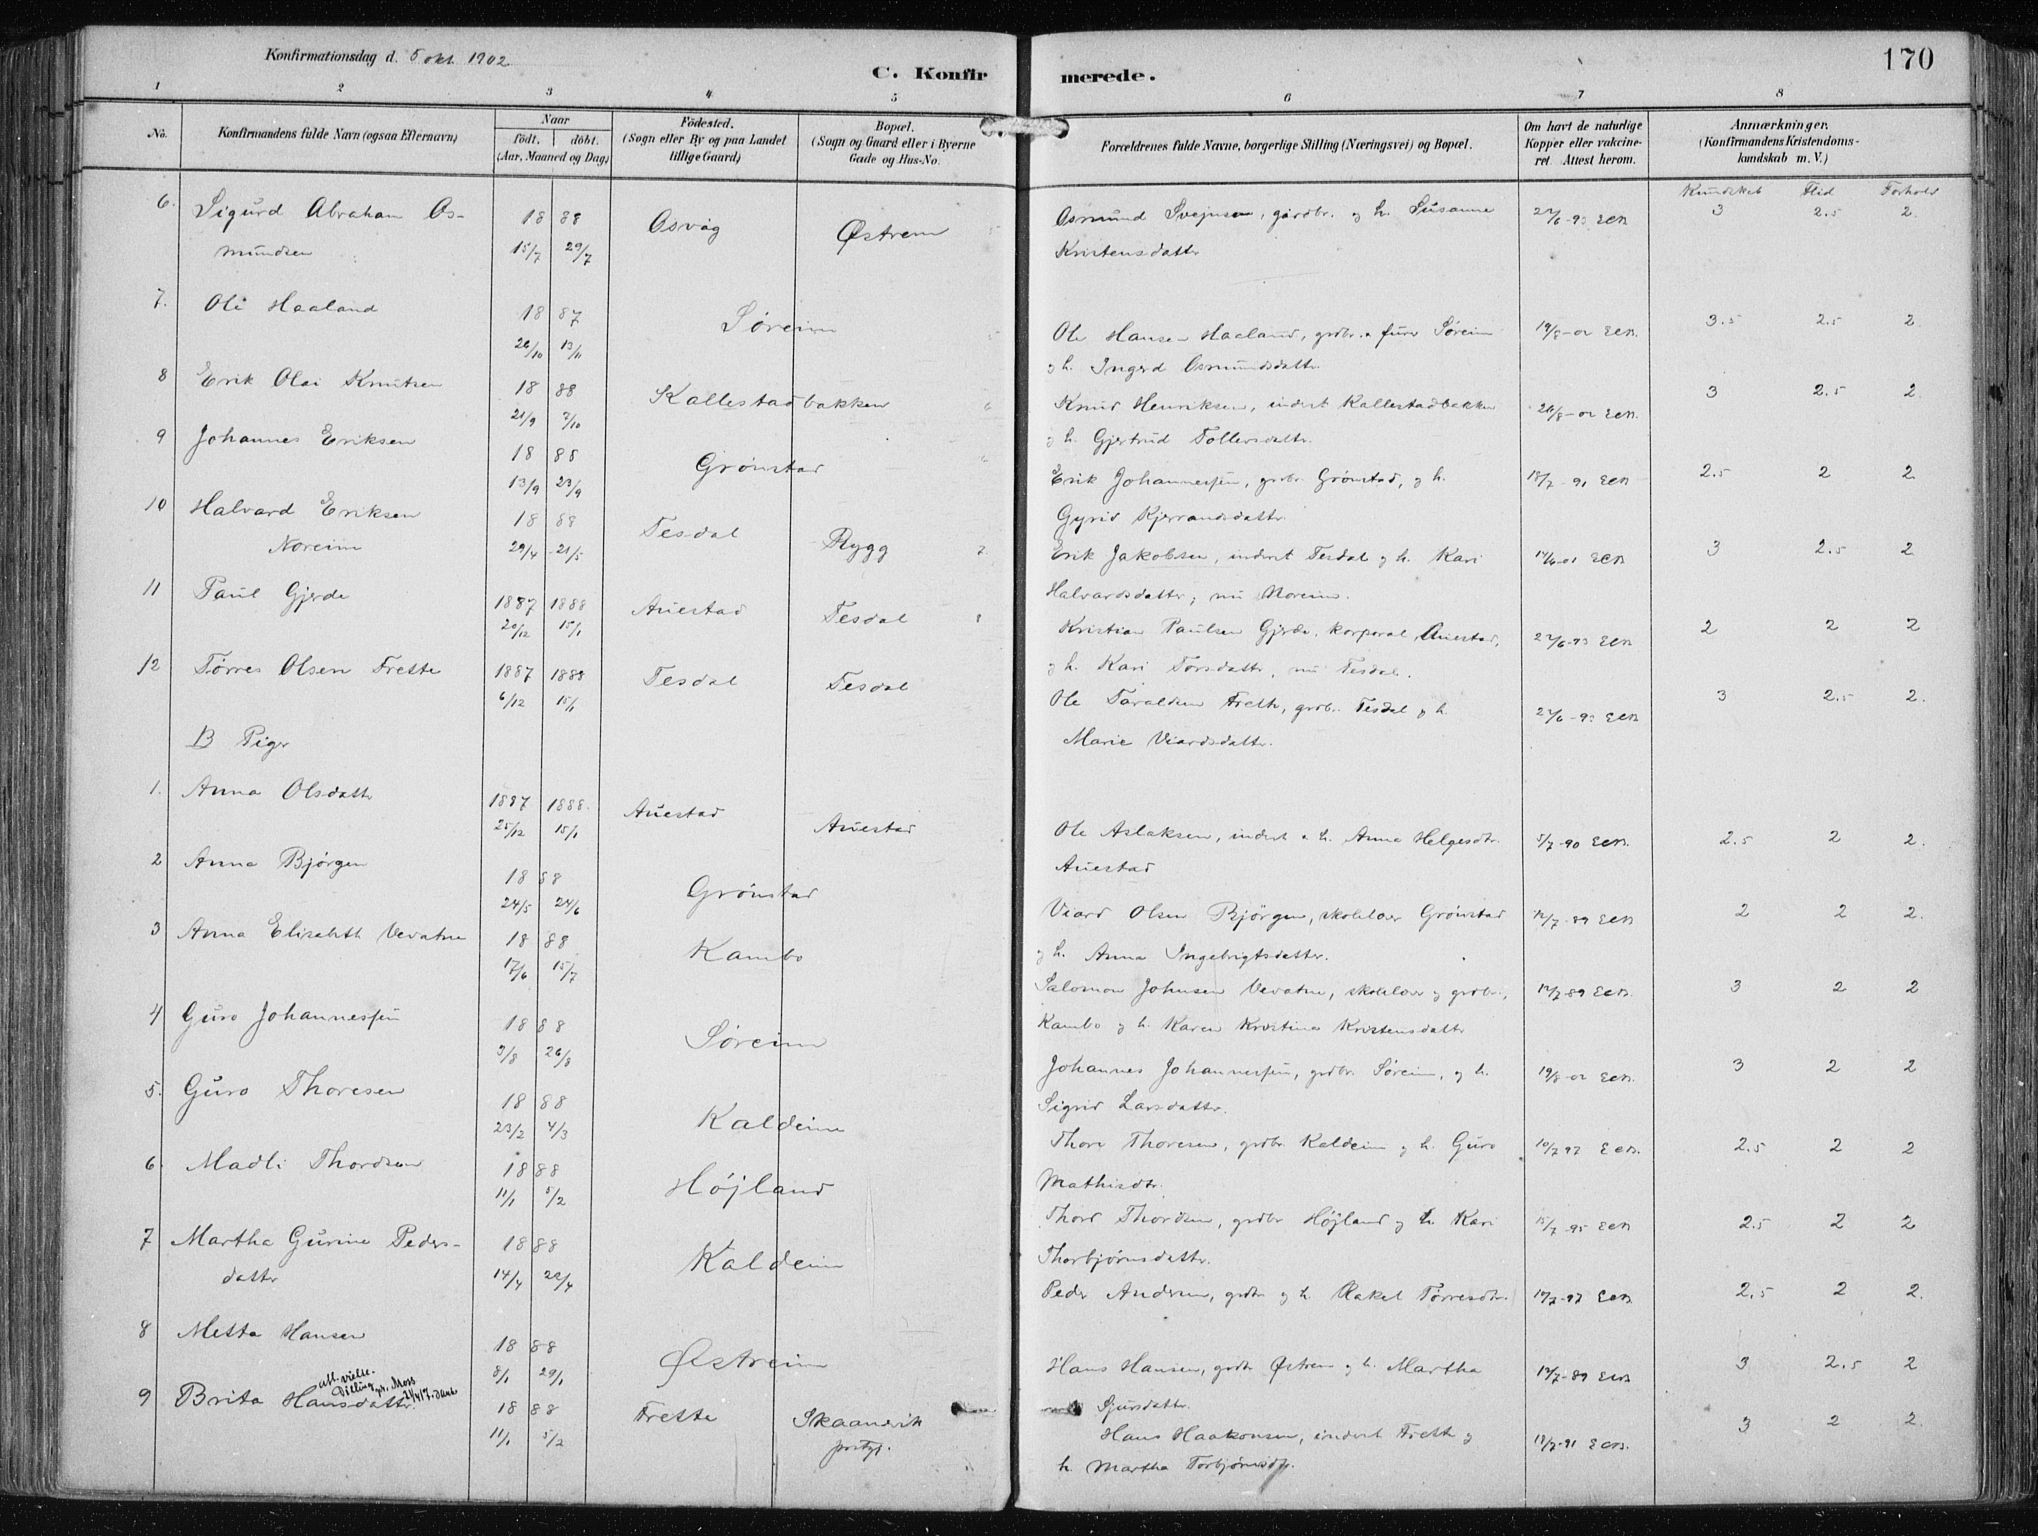 Konfirmationsdag d. 5 okt. 1902
C. Konfirmerede.
170
1 2 3 4 5 6 7 8
No. Konfirmandens fulde Navn (ogsaa Efternavn) Naar født. døbt. (Aar, Maaned og Dag) Födested. (Sogn eller By og paa Landet tillige Gaard) Bopæl. (Sogn og Gaard eller i Byerne Gade og Hus-No. Forældrenes fulde Navne, borgerlige Stilling (Næringsvei) og Bopæl. Om havt de naturlige Kopper eller vakcineret. Attest herom. Anmærkninger. (Konfirmandens Kristendomskundskab m. V.)
Kundskab Flid Forhold
6. Sigurd Abraham Os- 18 88 Osvåg Østrem Osmund Svejnsen, gårdbr. og h. Susanne 27/6-93 3 2.5 2.
mundsen 15/7 29/7 Kristensdatter
7. Ole Haaland 18 87 Søreim Ole Hansen Haaland, grdbr. Søreim 19/8-02 3.5 2.5 2
26/10 13/11 og h. Ingerd Osmundsdatter
8 Erik Olai Knutsen 18 88 Kallestadbakken Knud Henriksen, inderst Kallestadbakken 26/8-02 3 2.5 2.
21/9 7/10 og h. Gjertrud Tollevsdattr.
9 Johannes Eriksen 18 88 Grønstad Erik Johannessen, grdbr. Grønstad, og h. 18/7-91 2.5 2 2.
13/9 23/9 Gyrid Kjerrandsdattr.
10 Halvard Eriksen 18 88 Tesdal Rygg Erik Jakobsen, inderst Tesdal og h. Kari 3 2.5 2
Noreim 29/4 21/5 Halvardsdatter, nu Noreim.
11 Paul Gjerde 1887 1888 Auestad Tesdal Kristian Paulsen Gjerde, korporal, Auestad, 27/6-93 2 2 2
20/12 15/1 og h. Kari Torsdattr, nu Tesdal.
12 Tørres Olsen Frette 1887 1888 Tesdal Tesdal Ole Taraldsen Frette, grdbr. Tesdal og h. 27/6-93 3 2.5 2.
6/12 15/1 Marie Viardsdattr.
B Piger
1. Anna Olsdattr 1887 1888. Auestad Auestad Ole Aslaksen, inderst og h. Anna Helgesdtr. 5/7-90 2.5 2 2.
25/12 15/1 Auestad
2 Anna Bjørgen 18 88 Grønstad Viard Olsen Bjørgen, skolelær Grønstad 12/7-89 2 2 2.
24/5 24/6 og h. Anna Ingebrigtsdatter.
3 Anna Elisabeth Vevatne 18 88 Kambo Salomon Johnsen Vevatne, skolelær og grdbr., 12/7-89 3 2 2
17/6 15/7 Kambo og h. Karen Kristina Kristensdattr
4 Guro Johannessen 18 88 Søreim Johannes Johannessen, grdbr. Søreim, og h. 19/8-02 3 2 2
3/8 26/8 Sigrid Larsdattr.
5. Guro Thoresen 18 88 Kaldeim Thore Thoresen, grdbr. Kaldeim og h. Guro 10/7 97 2.5 2 2
23/2 4/3 Mathisdtr.
6. Madli Thordsen 18 88 Højland Thord Thordsen, grdbr Højland og h. Kari 15/7-95 2.5 2 2
11/1 5/2 Thorbjørnsdattr.
7 Martha Gurine Peders- 18 88 Kaldeim Peder Andersen, grdbr og h. Rakel Tørresdtr. 2.5 2 2.
datter 14/4 22/4
8 Metta Hansen 18 88 Østreim Hans Hansen, grdbr. Østrem og h. Martha 12/7-89 3 2.5 2
8/1 29/1 Sjursdatter.
att. vielse.
Dilling pr. Moss
9 Brita Hansdattr 18 88 Frette Skaanevik Hans Haakonsen, inderst Frette og 18/7-91 3 2 2.
11/1 5/2 prstgj. h. Martha Torbjørnsdtr.